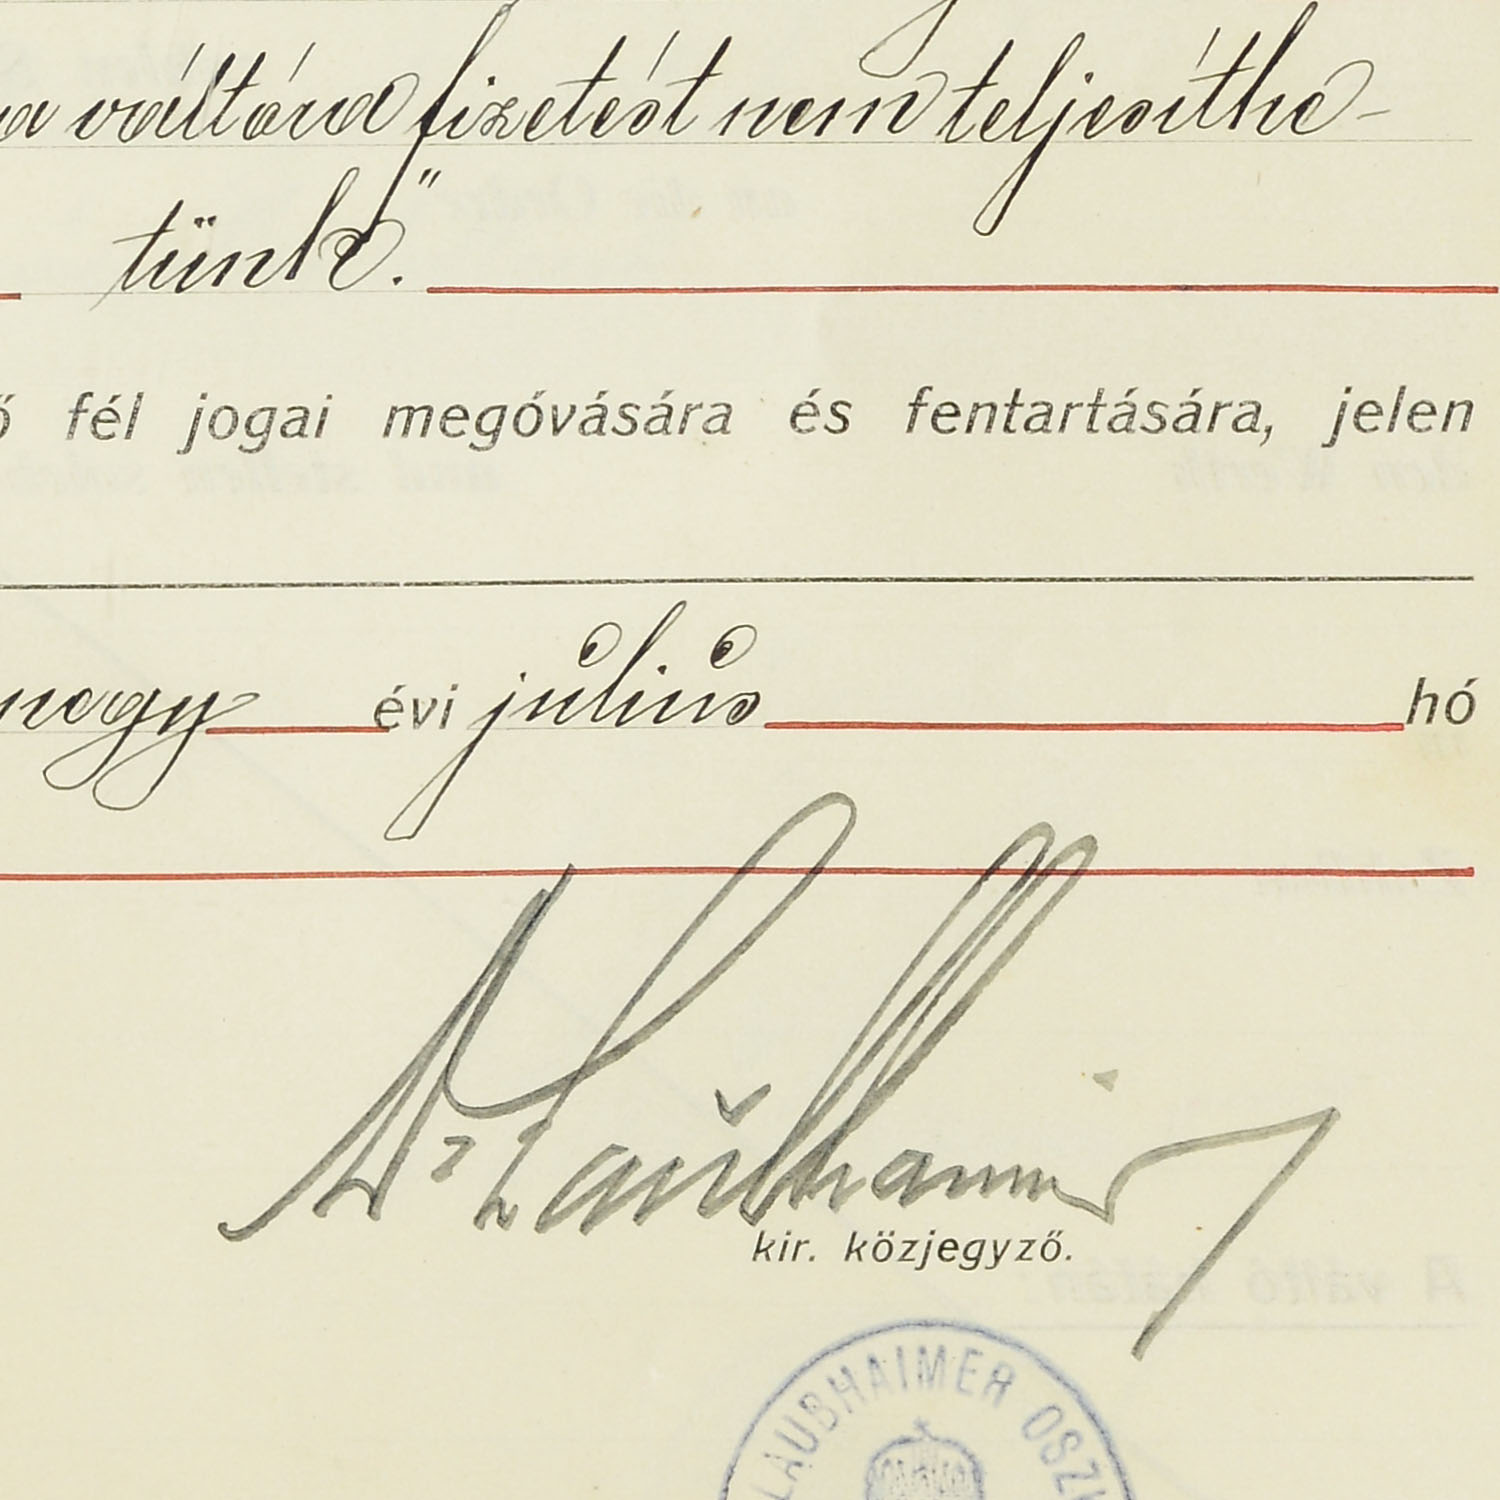 a váltóra fizetést nem teljesíthe-
tünk."
ő fél jogai megóvására és fentartására, jelen
negy évi július hó
Dr Laubhaimer
kir. közjegyző.
LAUBHAIMER OSZK